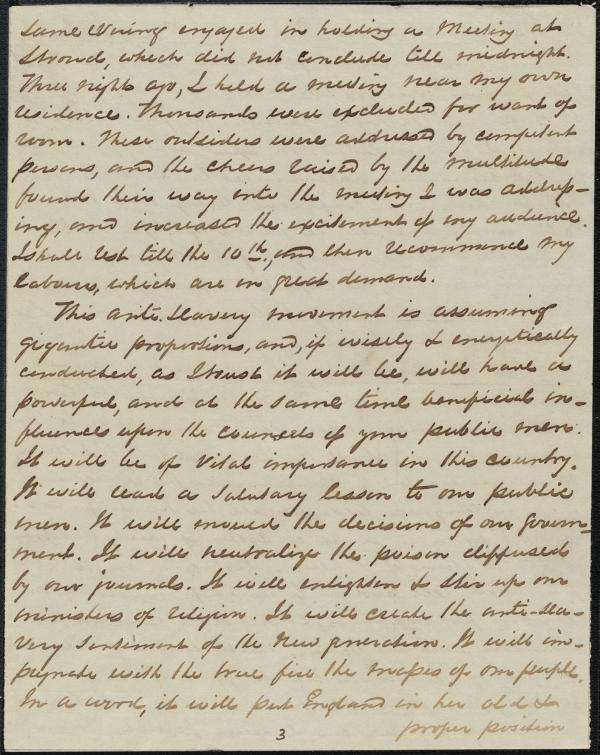 same evening engaged in holding a Meeting at
Stroud, which did not conclude till midnight.
Three nights ago, I held a meeting near my own
residence. Thousands were excluded for want of
room. These outsiders were addressed by competent
persons, and the cheers raised by the multitude
found their way into the meeting I was address-
ing, and increased the excitement of my audience.
I shall rest till the 10th, and then recommence my
labours, which are in great demand.
This anti-slavery movement is assuming
gigantic proportions, and, if wisely & energetically
conducted, as I trust it will be, will have a
powerful, and at the same time beneficial in-
fluences upon the counsels of your public men.
It will be of vital importance in this country.
It will read a salutary lesson to our public
men. It will mould the decisions of our Govern-
ment. It will neutralize the poison diffused
by our journals. It will enlighten & stir up our
ministers of religion. It will create the anti-sla-
very sentiment of the new generation. It will im-
pregnate with the true fire the masses of our people.
In a word, it will put England in her old &
proper position
3